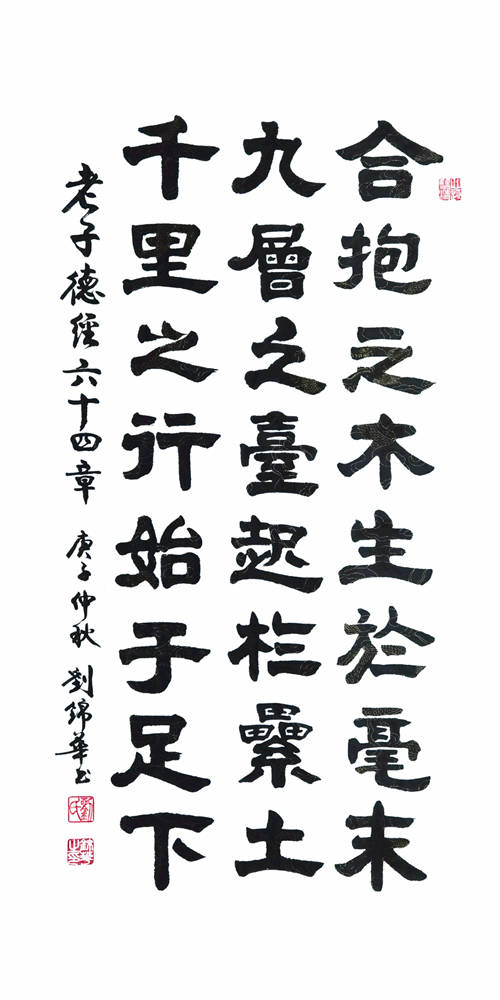 合抱之木生於毫末
九層之臺起扵纍土
千里之行始于足下
老子德經六十四章 庚子仲秋 劉錦華书
劉氏